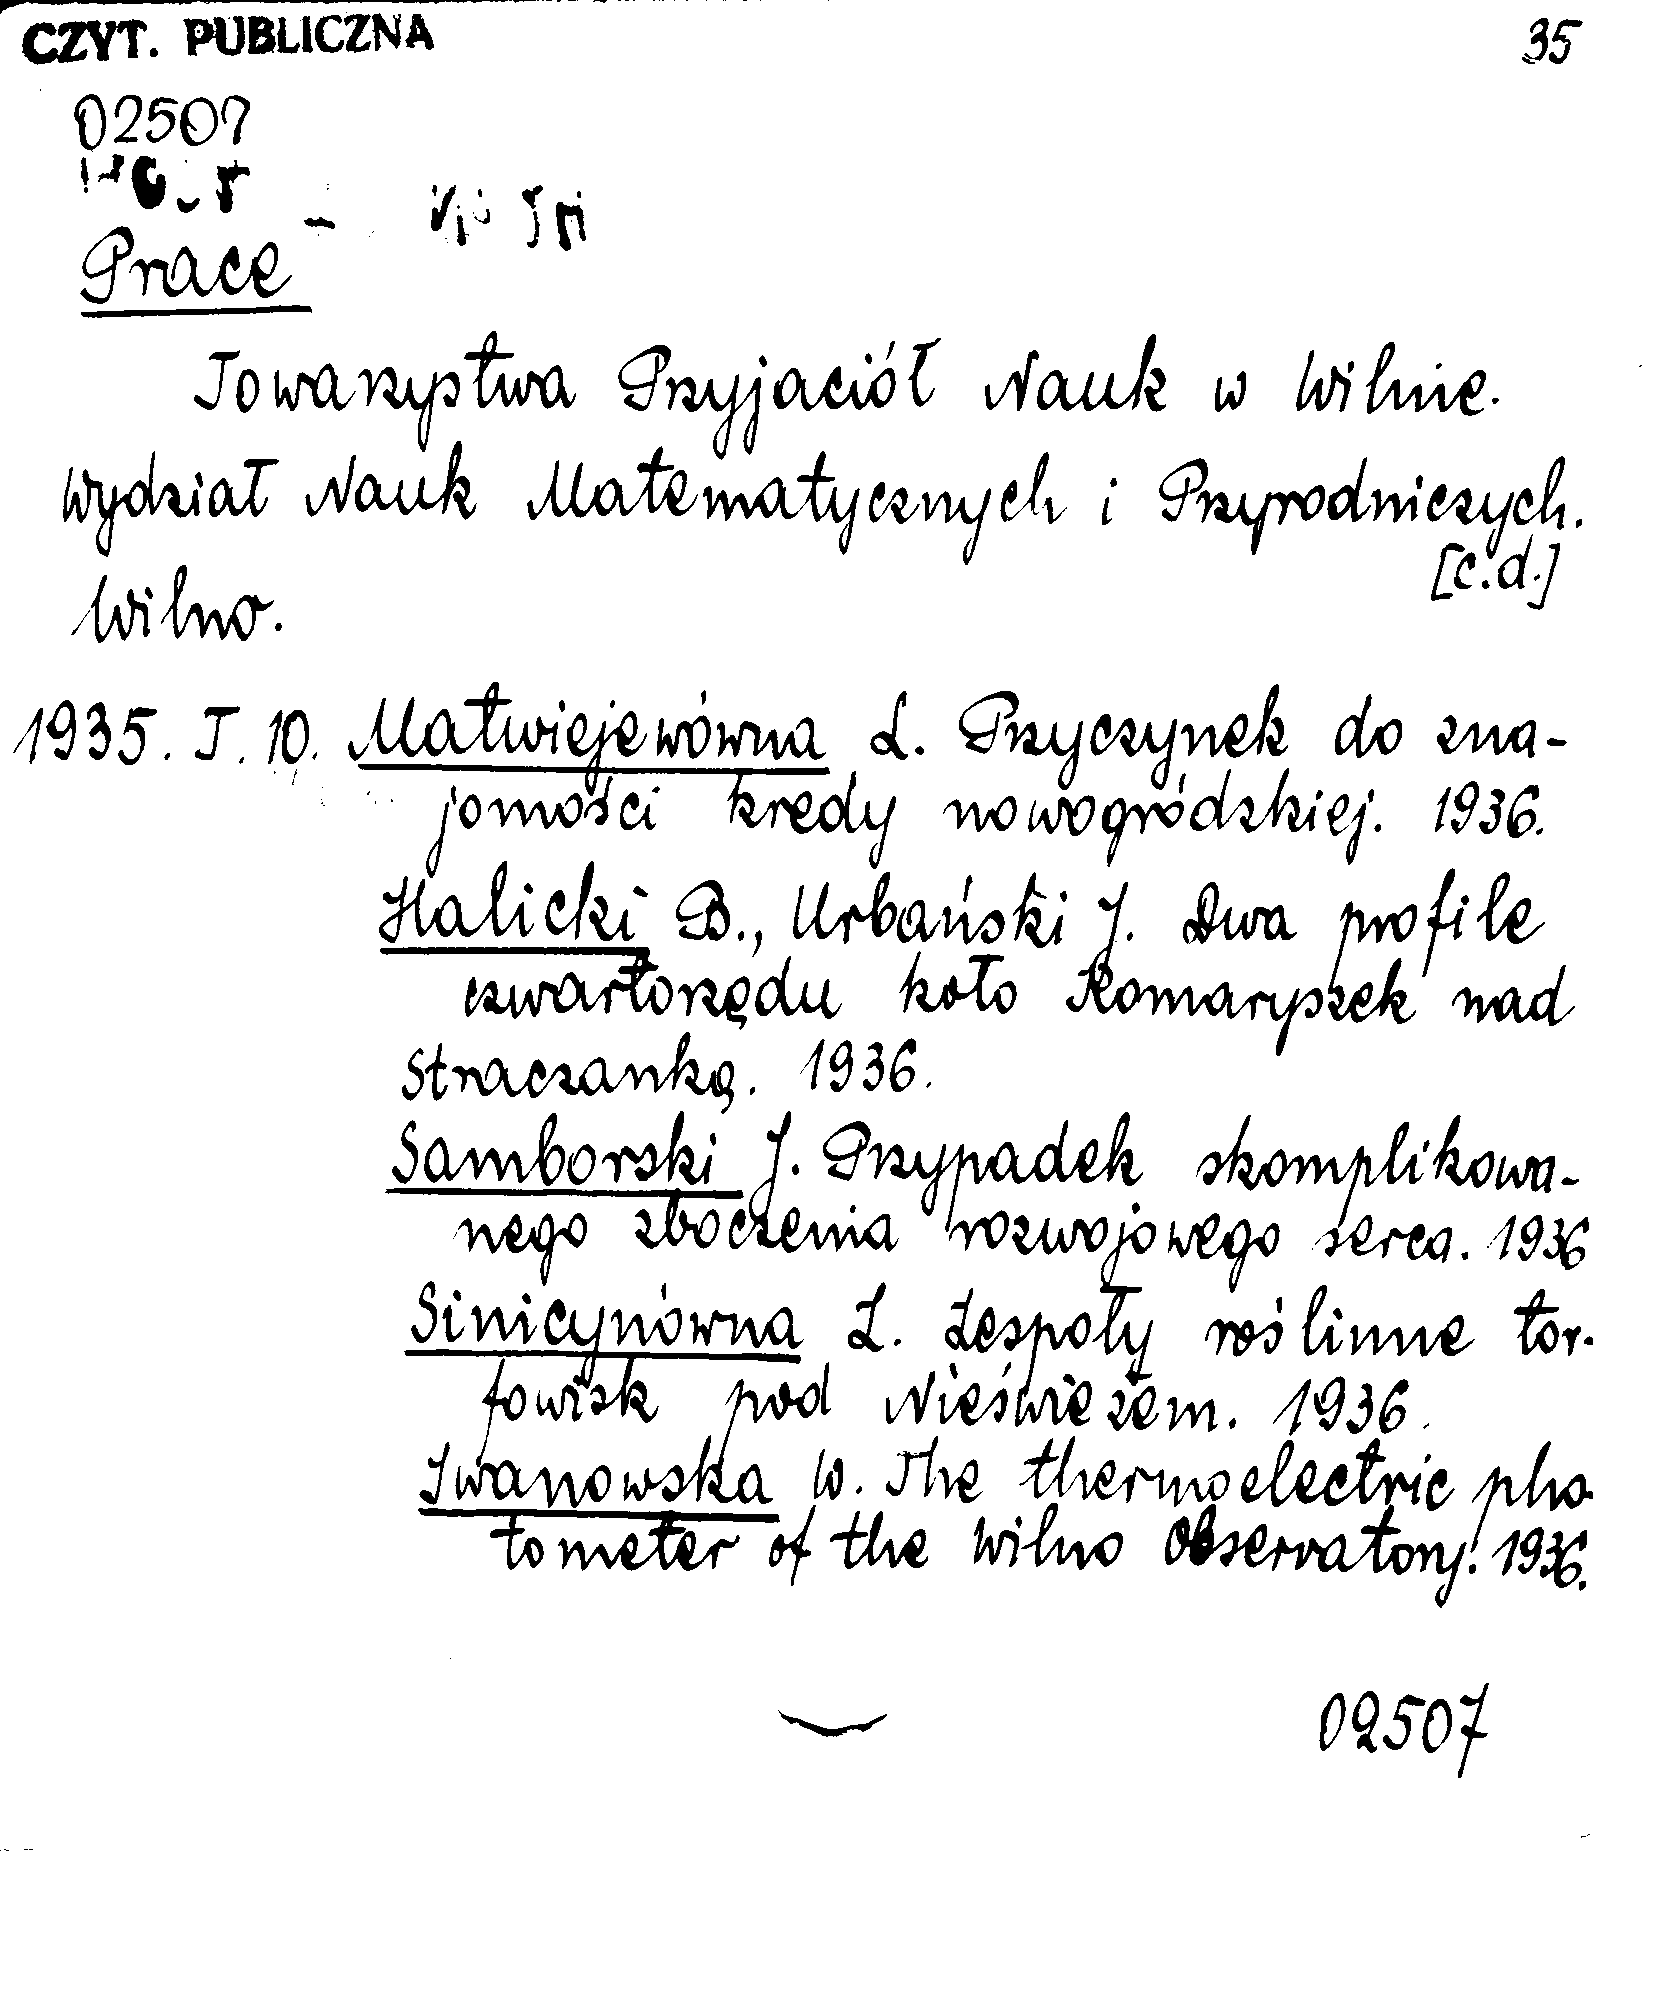 CZYT. PUBLICZNA 35
02507
Prace
Towarzystwa Przyjaciół Nauk w Wilnie.
Wydział Nauk Matematycznych i Przyrodniczych.
[c.d.]
Wilno.
1935. T. 10. Matwiejewówna L. Przyczynek do zna-
jomości kredy nowogródzkiej. 1936.
Halicki B., Urbański J. Dwa profile
czwartorzędu koło Komaryszek nad
Straczanką. 1936.
Samborski J. Przypadek skomplikowa-
nego zboczenia rozwojowego serca. 1936
Sinicynówna L. Zespoły roślinne tor-
fowisk pod Nieświeżem. 1936.
Iwanowska W. The thermoelectric pho-
tometer of the Wilno Observatory. 1936.
02507